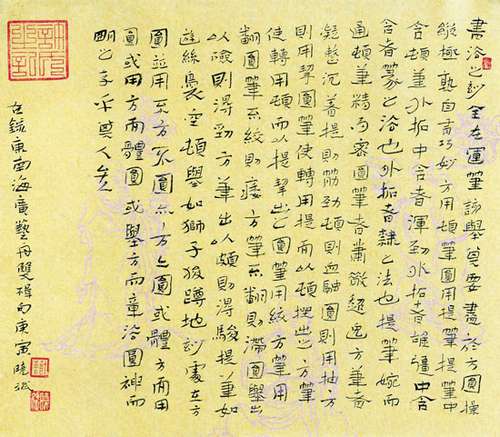 書法之妙全在運筆該舉其要盡於方圓操
縱極熟自有巧妙方用頓筆圓用提筆提筆中
含頓筆外拓中含者渾勁外拓者雄彊中含
含者篆之法也外拓者隸之法也提筆婉而
通頓筆精而密圓筆者蕭散超逸方筆者
凝整沉著提則筋勁頓則血融圓則用抽方
則用挈圓筆使轉用提而以頓挫出之方筆
使轉用頓而以提挈出之圓筆用絞方筆用
翻圓筆不絞則痿方筆不翻則滯圓筆出
以險則得勁方筆出以頗則得駿提筆如
遊絲裊空頓筆如獅子狻蹲地妙處在方
圓並用不方不圓亦方亦圓或體方而用
圓或用方而體圓或筆方而章法圓神而
明之存乎其人矣
右錄康南海廣藝舟雙楫句庚寅曉波